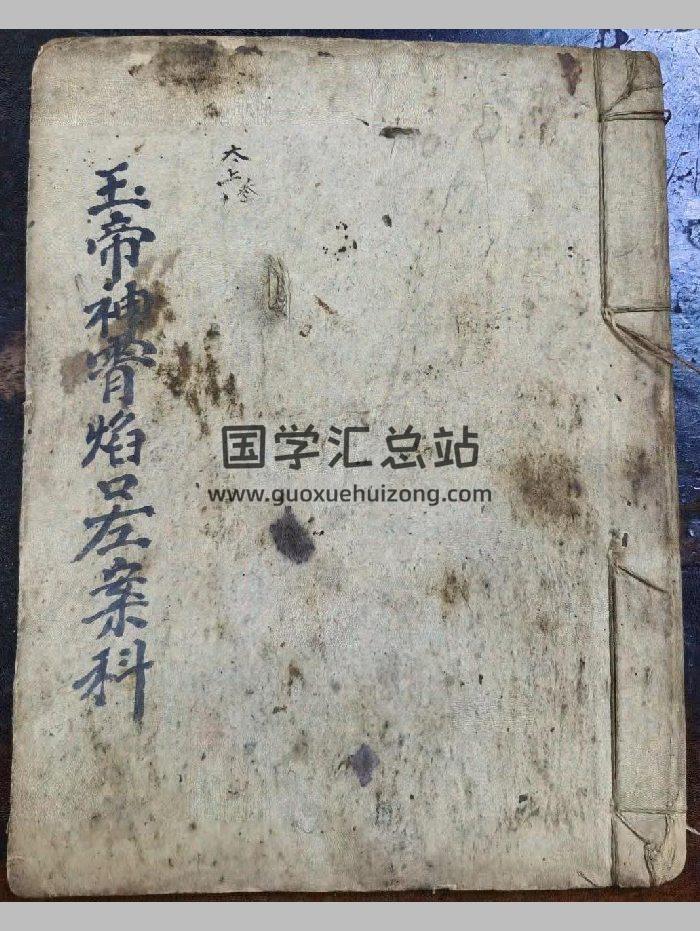 玉帝神霄焰口左案科
太上
国学汇总站
www.guoxuehuizong.com